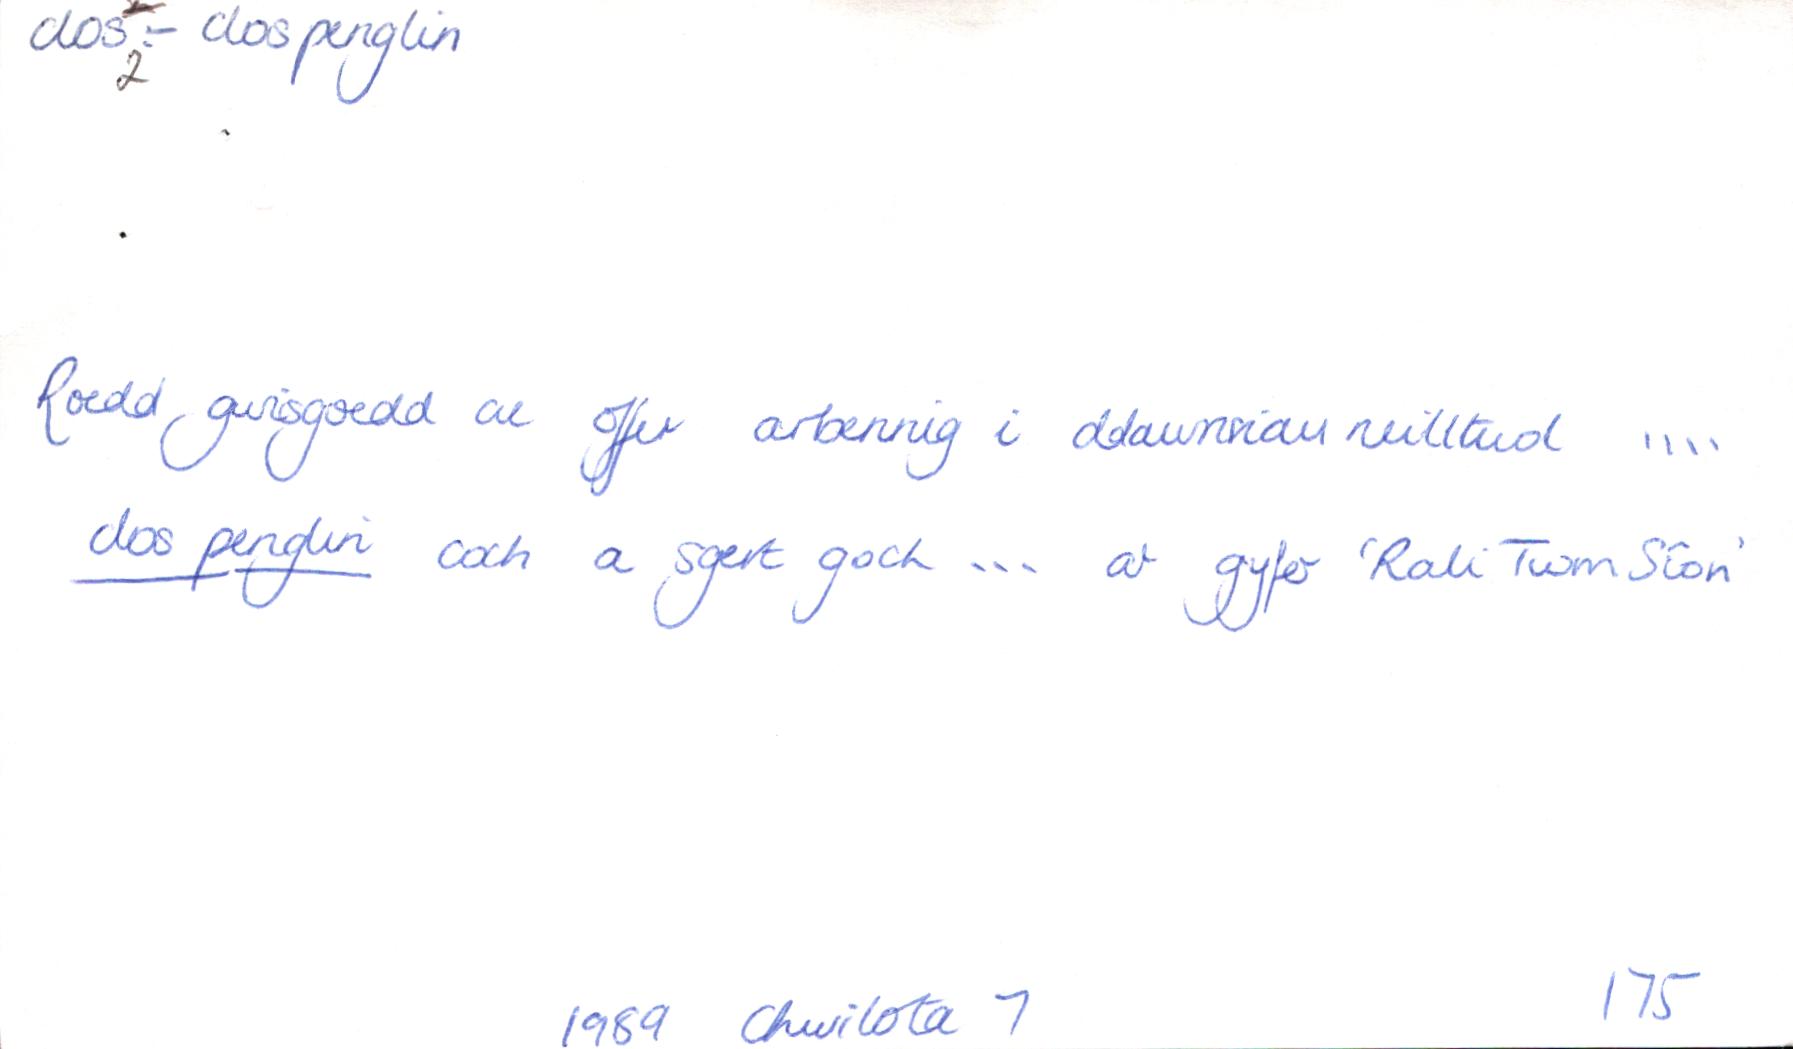 clos2:- clos penglin
Roedd gwisgoedd ac offer arbennig i ddawnsiau neilltuol ....
clos penglin coch a sgert goch ... ar gyfer 'Rali Twm Siôn'
1989 Chwilota 7 175